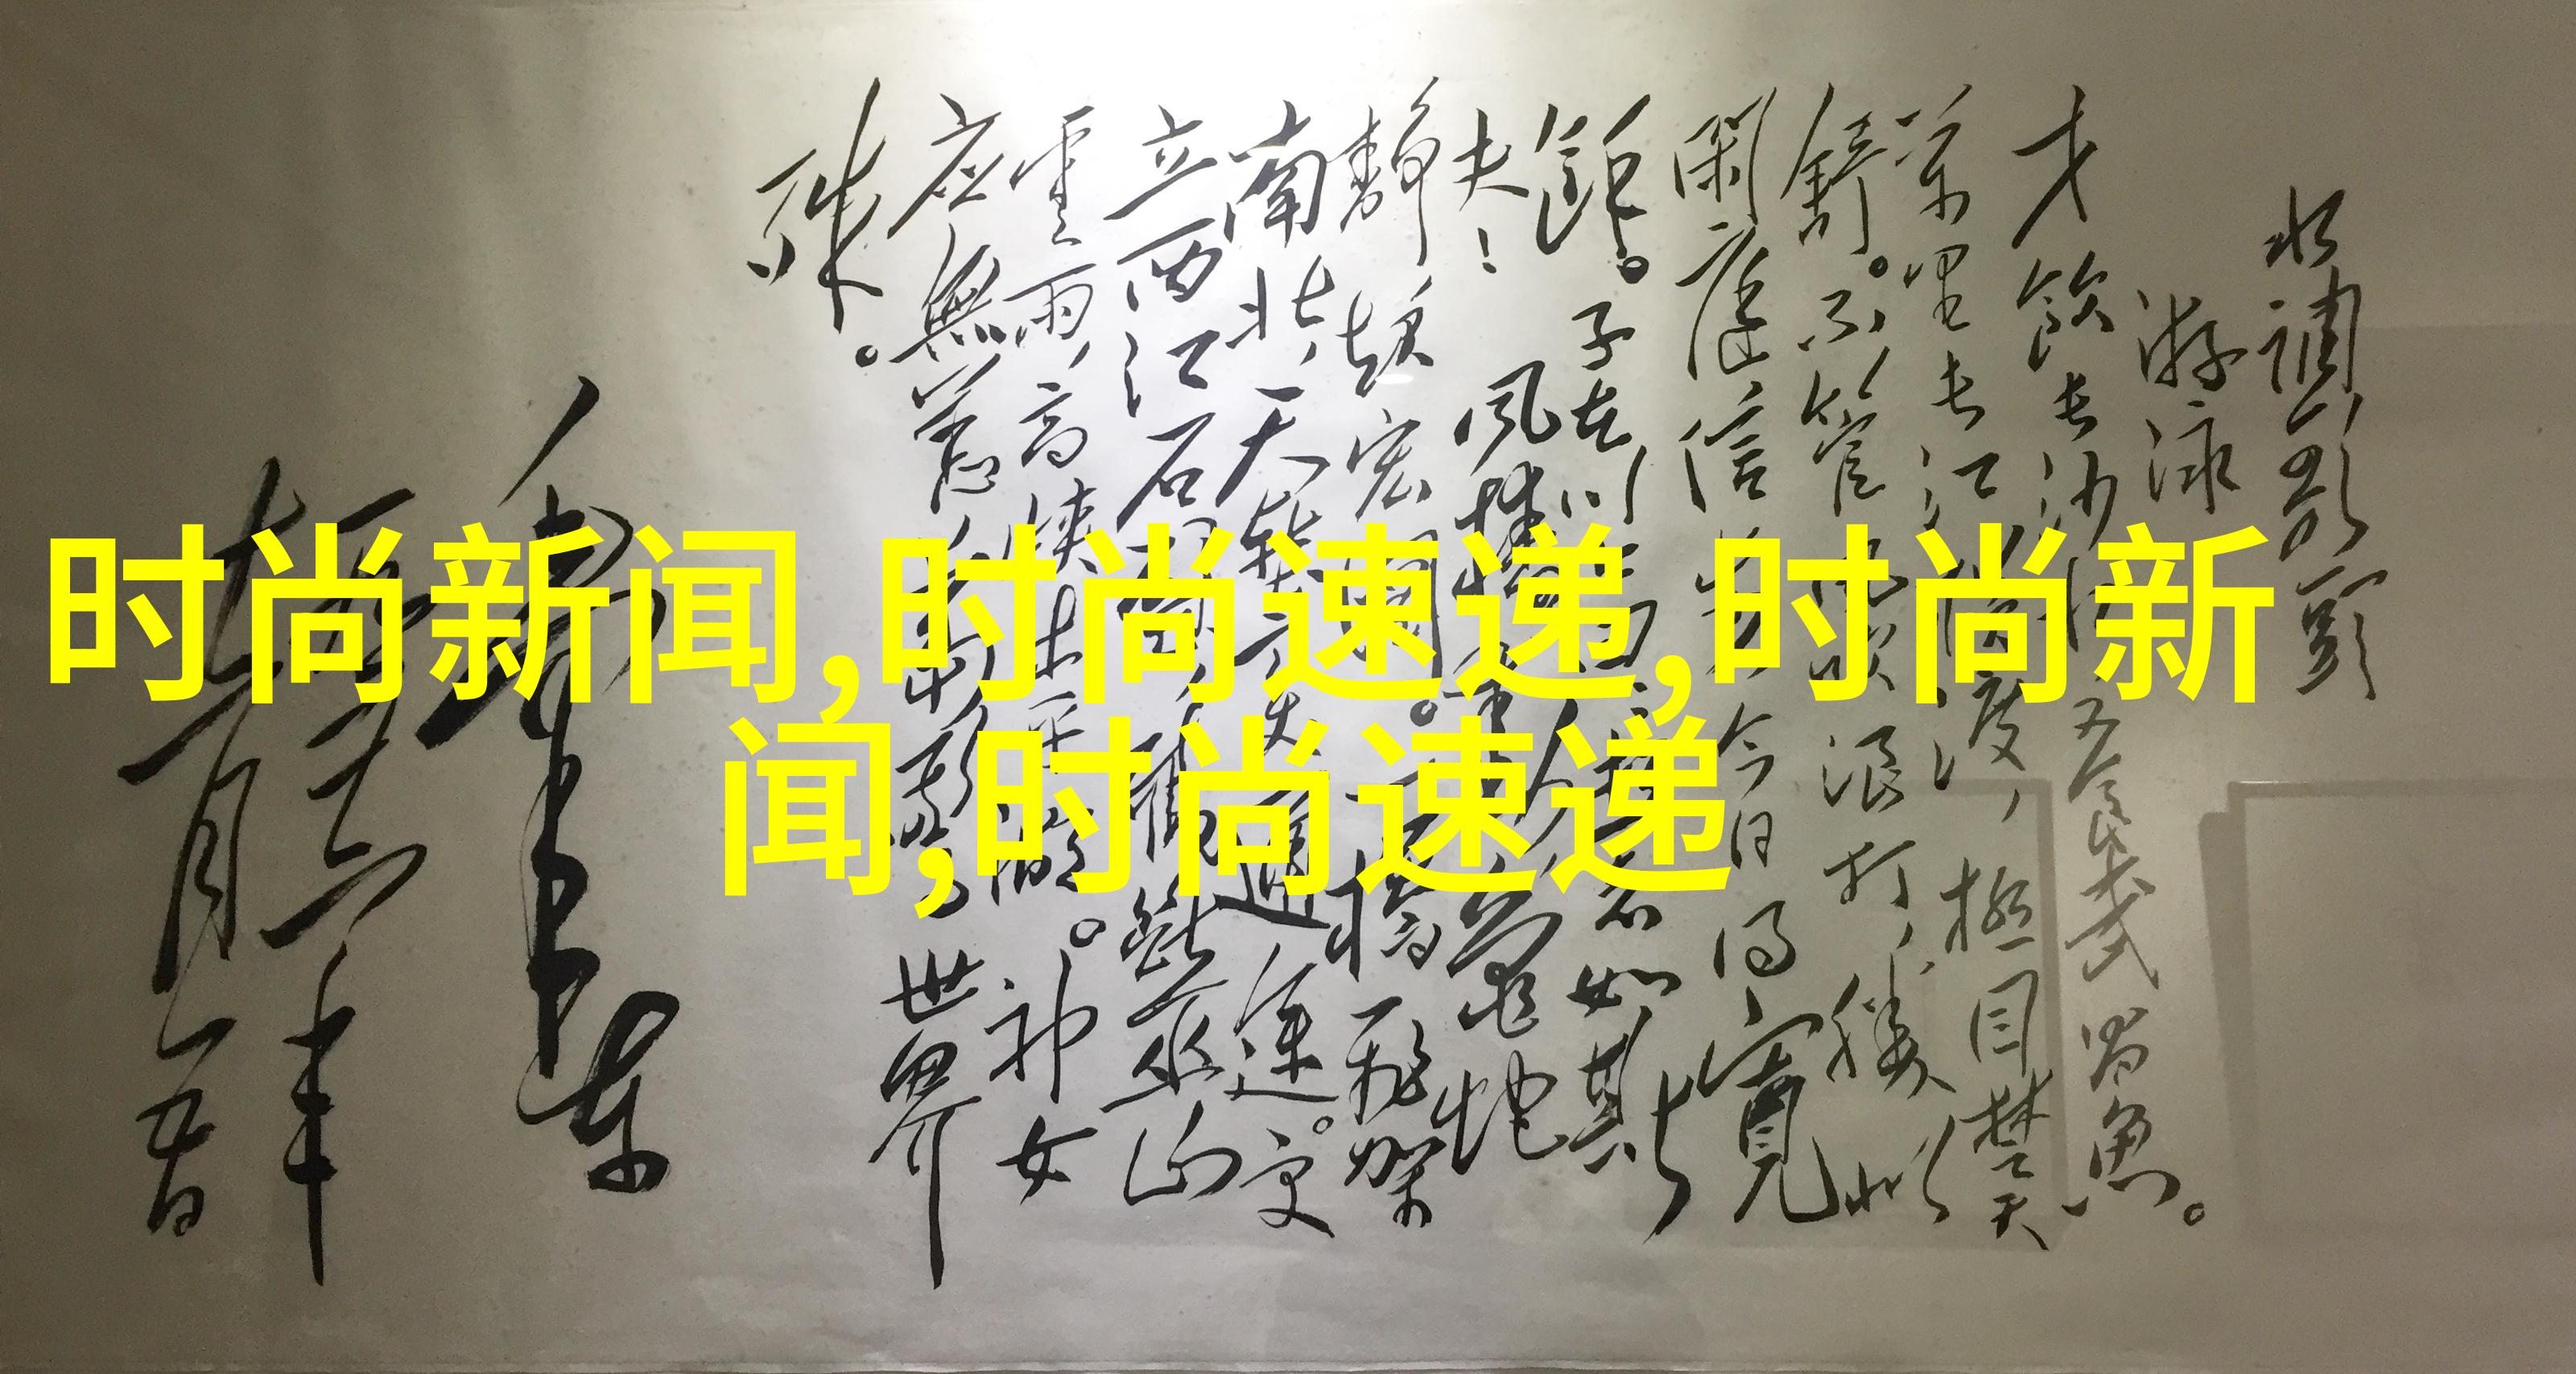 时尚新闻,时尚速递,时尚新
闻,时尚速递
水调歌頭
游泳
才飲长沙水 又食武昌魚。
萬里长江横渡，极目楚天
舒。不管风吹浪打，勝似
闲庭信步 今日得寬
馀。子在川上曰：逝者如斯
夫！ 风樯动 龟蛇
静 起宏圖。一桥飞架
南北，天塹变通途。更
立西江石壁，截断巫山
雲雨，高峡出平湖。神女
应無恙 当惊 世界
殊。